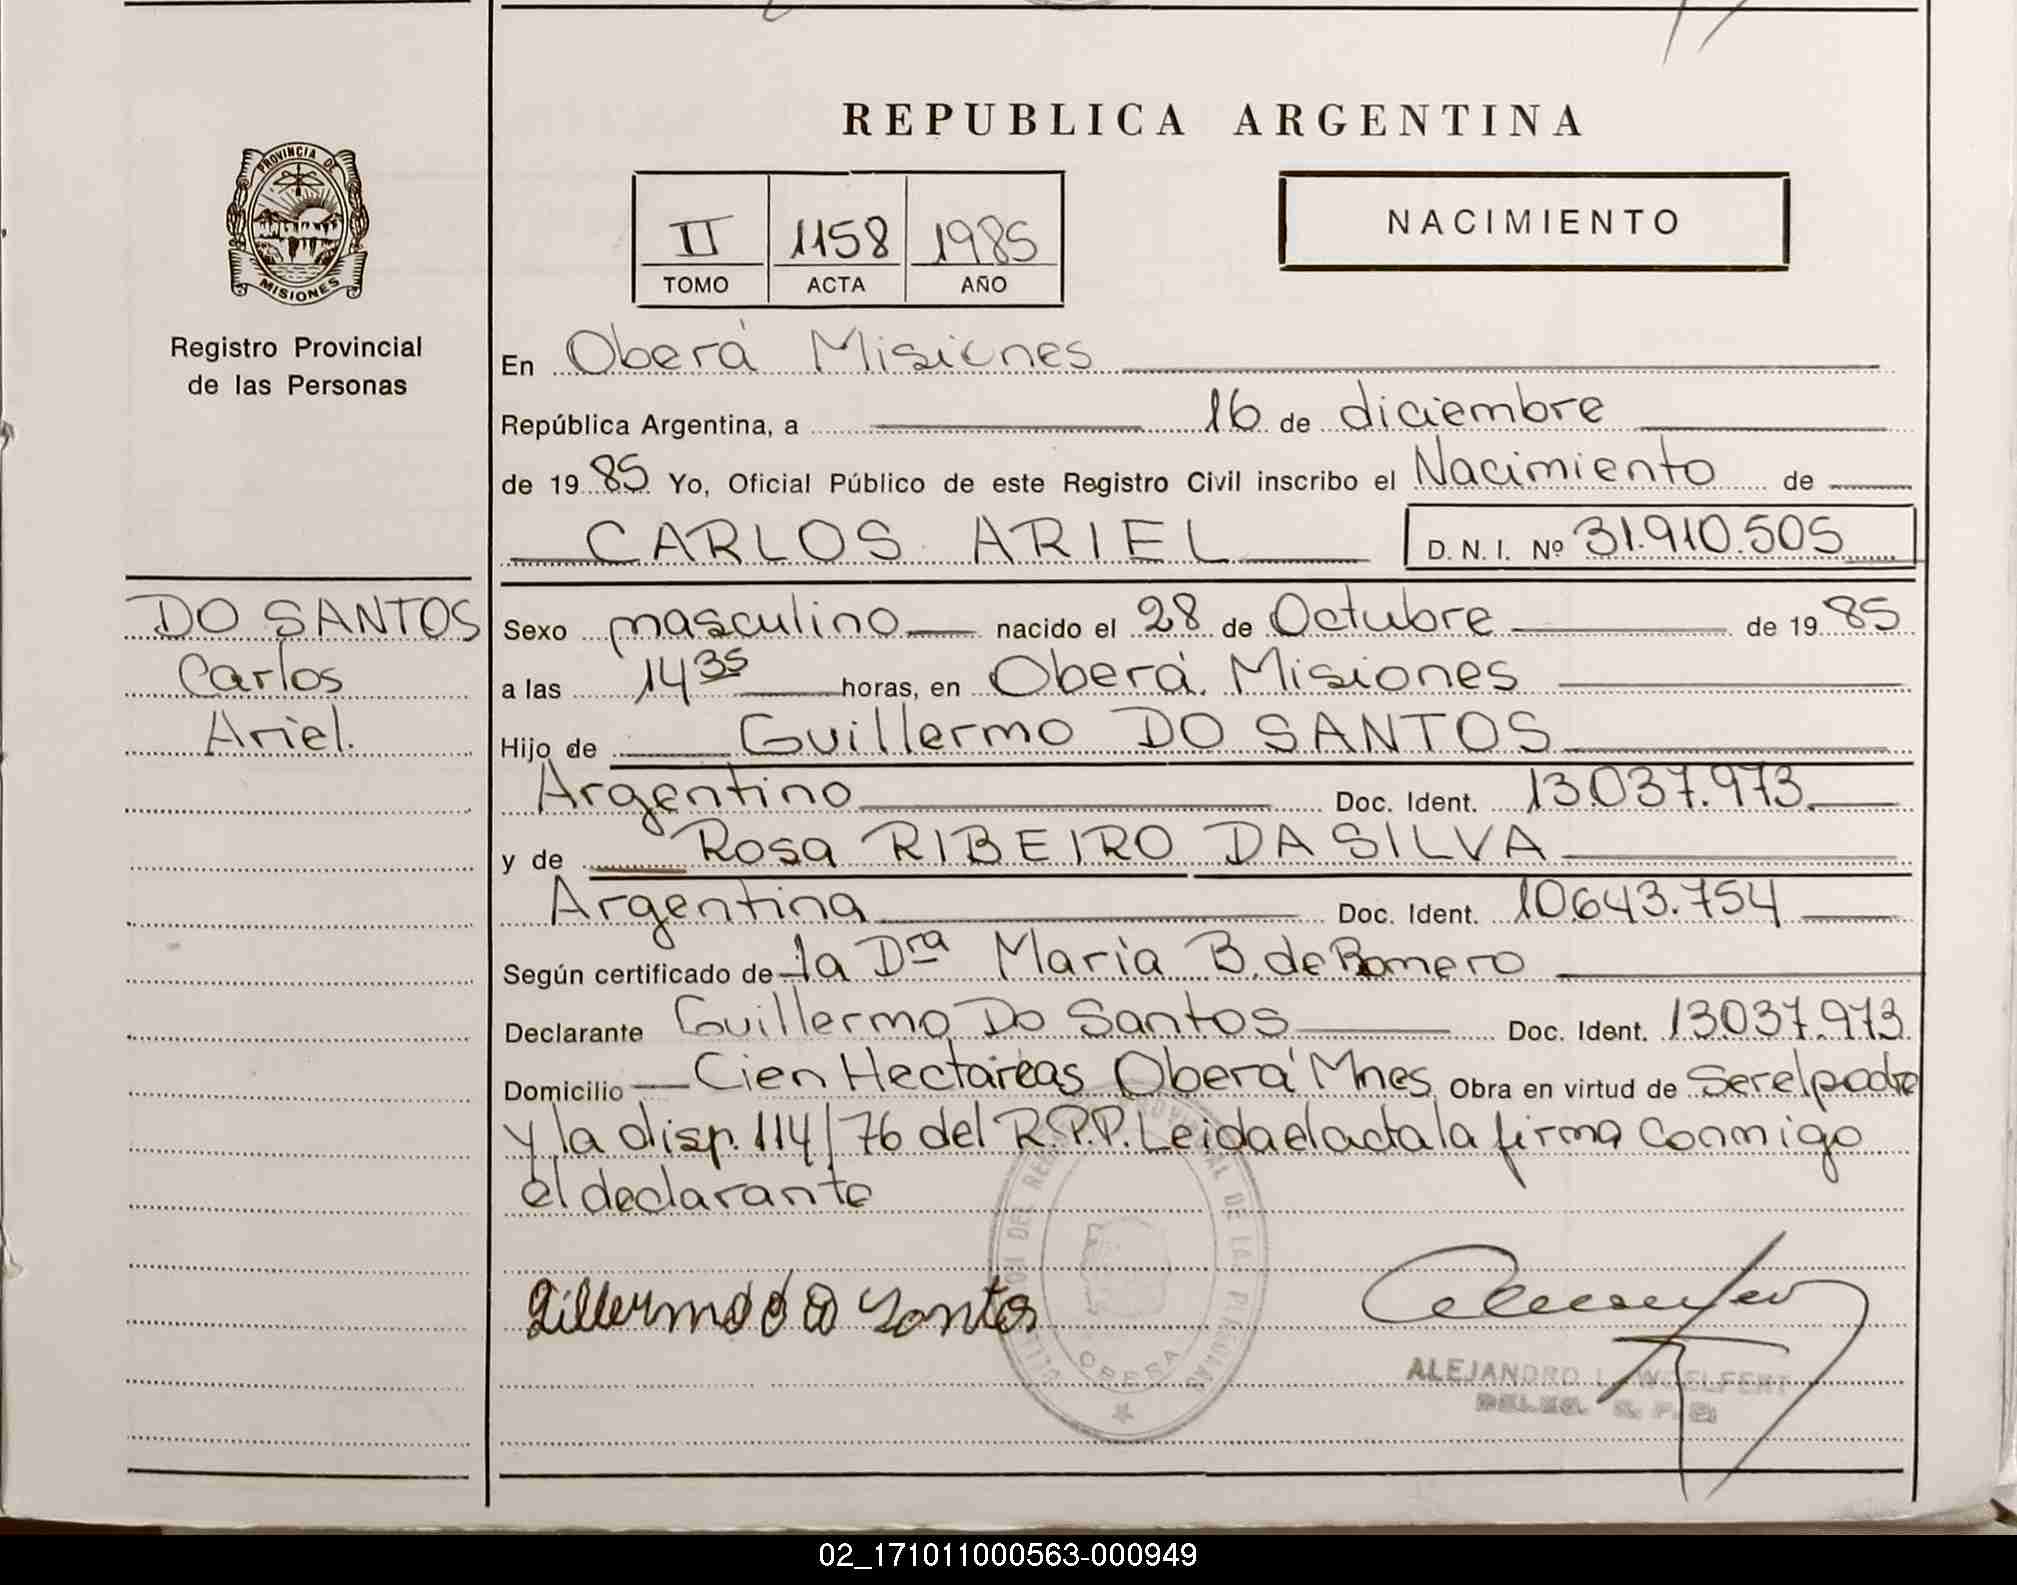 REPUBLICA ARGENTINA
PROVINCIA DE
MISIONES
Registro Provincial
de las Personas
II 1158 1985
TOMO ACTA AÑO
NACIMIENTO
En Oberá Misiones
República Argentina, a 16 de diciembre
de 1985 Yo, Oficial Público de este Registro Civil inscribo el Nacimiento de
CARLOS ARIEL D.N.I. Nº 31.910.505
DO SANTOS
Carlos
Ariel.
Sexo masculino nacido el 28 de Octubre de 1985
a las 14 35 horas, en Oberá. Misiones
Hijo de Guillermo DO SANTOS
Argentino Doc. Ident. 13.037.973.
y de Rosa RIBEIRO DA SILVA
Argentina Doc. Ident. 10643.754
Según certificado de la Dra Maria B. de Romero
Declarante Guillermo Do Santos Doc. Ident. 13.037.973.
Domicilio Cien Hectáreas Oberá Mnes. Obra en virtud de Ser el padre
y la disp. 114/76 del R.P.P. Leida el acta la firma conmigo
el declarante
Gillermo do Santos
OBERA
ALEJANDRO L. WOELFERT
02_171011000563-000949